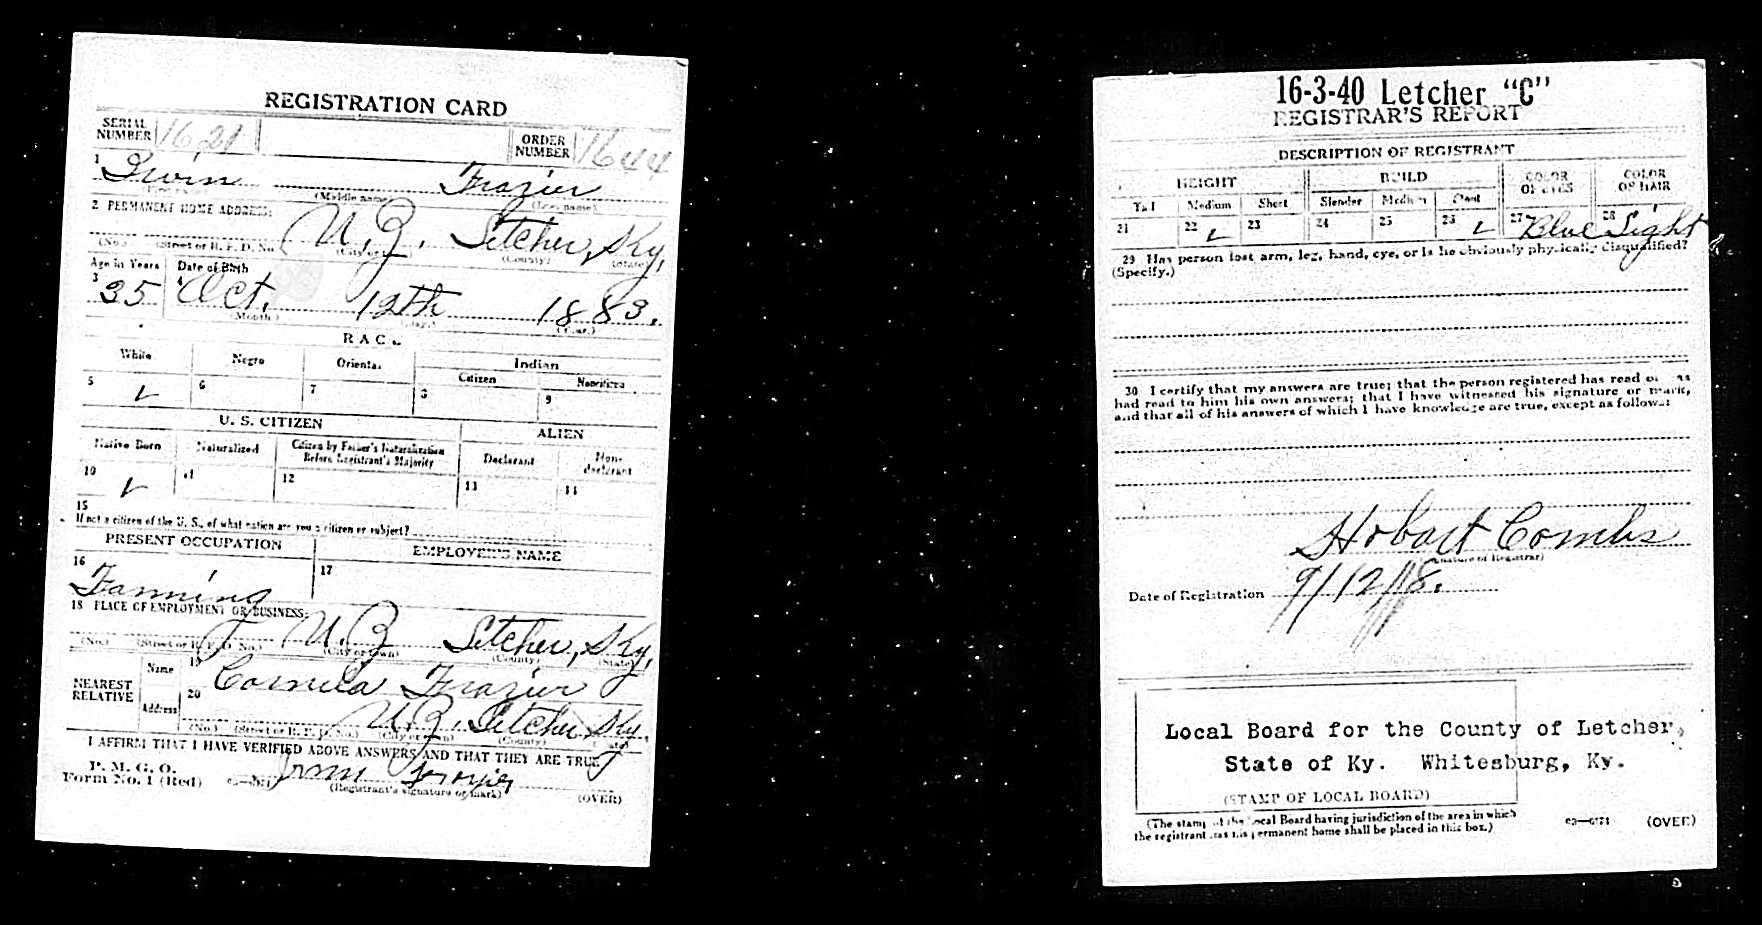 REGISTRATION CARD
SERIAL NUMBER 1621 ORDER NUMBER 1644
1 Irvin Frazier
(Middle name) (Last name)
2 PERMANENT HOME ADDRESS:
U.Z. Letcher, Ky,
(No.) (Street or R. F. D. No.) (City or town) (County) (State)
Age in Years Date of Birth
3 35 4 Oct. 12th 1883.
(Month) (Day) (Year)
RACE
White Negro Oriental Indian
Citizen Noncitizen
5 ✓ 6 7 8 9
U. S. CITIZEN ALIEN
Native Born Naturalized Citizen by Father's Naturalization Before Registrant's Majority Declarant Non-declarant
10 ✓ 11 12 13 14
15
If not a citizen of the U. S., of what nation are you a citizen or subject?
PRESENT OCCUPATION EMPLOYER'S NAME
16 Farming 17
18 PLACE OF EMPLOYMENT OR BUSINESS:
U.Z Letcher, Ky,
(No.) (Street or R. F. D. No.) (City or town) (County) (State)
NEAREST RELATIVE Name 19 Frazier
Address 20 U.Z. Letcher, Ky.
(No.) (Street or R. F. D. No.) (City or town) (County) (State)
I AFFIRM THAT I HAVE VERIFIED ABOVE ANSWERS AND THAT THEY ARE TRUE
P. M. G. O.
Form No. 1 (Red) Frazier
(Registrant's signature or mark) (OVER)
16-3-40 Letcher "C"
REGISTRAR'S REPORT
DESCRIPTION OF REGISTRANT
HEIGHT BUILD COLOR OF EYES COLOR OF HAIR
Tall Medium Short Slender Medium Stout
21 22 ✓ 23 24 25 26 ✓ 27 Blue 28 Light
29 Has person lost arm, leg, hand, eye, or is he obviously physically disqualified?
(Specify.)
30 I certify that my answers are true; that the person registered has read or has
had read to him his own answers; that I have witnessed his signature or mark,
and that all of his answers of which I have knowledge are true, except as follows:
Hobart Combs
(Signature of Registrar)
Date of Registration 9/12/18.
Local Board for the County of Letcher,
State of Ky. Whitesburg, Ky.
(STAMP OF LOCAL BOARD)
(The stamp of the Local Board having jurisdiction of the area in which
the registrant has his permanent home shall be placed in this box.)
(OVER)